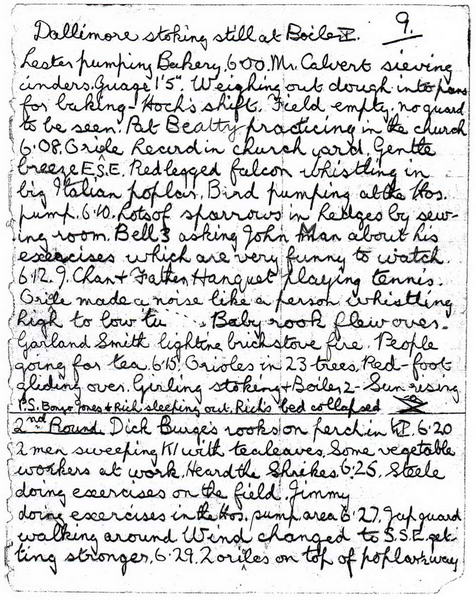 9.
Dallimore stoking still at Boiler V.
Lester pumping Bakery. 6.00. Mr. Calvert sieving
cinders. Guage 1'5". Weighing out dough into pans
for baking - Hoch's shift. Field empty, no guard
to be seen. Pat Beatty practicing in the church
6.08. Oriole Record in church yard. Gentle
breeze E.S.E. Redlegged falcon whistling in
big Italian poplar. Bird pumping at the Hos.
pump. 6.10. Lots of sparrows in hedges by sew-
ing room. Bell 3 asking John Man about his
exercises which are very funny to watch.
6.12. 9. Chan + Father Hanquet playing tennis.
Oriole made a noise like a person whistling
high to low Baby rook flew over.
Garland Smith lighting brickstove fire. People
going for tea. 6.15. Orioles in 23 trees. Red-foot
gliding over. Girling stoking Boiler 2 - Sun rising
P.S. Bongo Jones & Rich sleeping out. Rich's bed collapsed
2nd Round. Dick Burge's rooks on perch in 6.20
2 men sweeping K1 with tealeaves. Some vegetable
workers at work. Heard the Shrikes. 6.25. Steele
doing exercises on the field. Jimmy
doing exercises in the Hos. pump area 6.27. Jap guard
walking around Wind changed to S.S.E. get-
ting stronger. 6.29. 2 orioles on top of poplar away